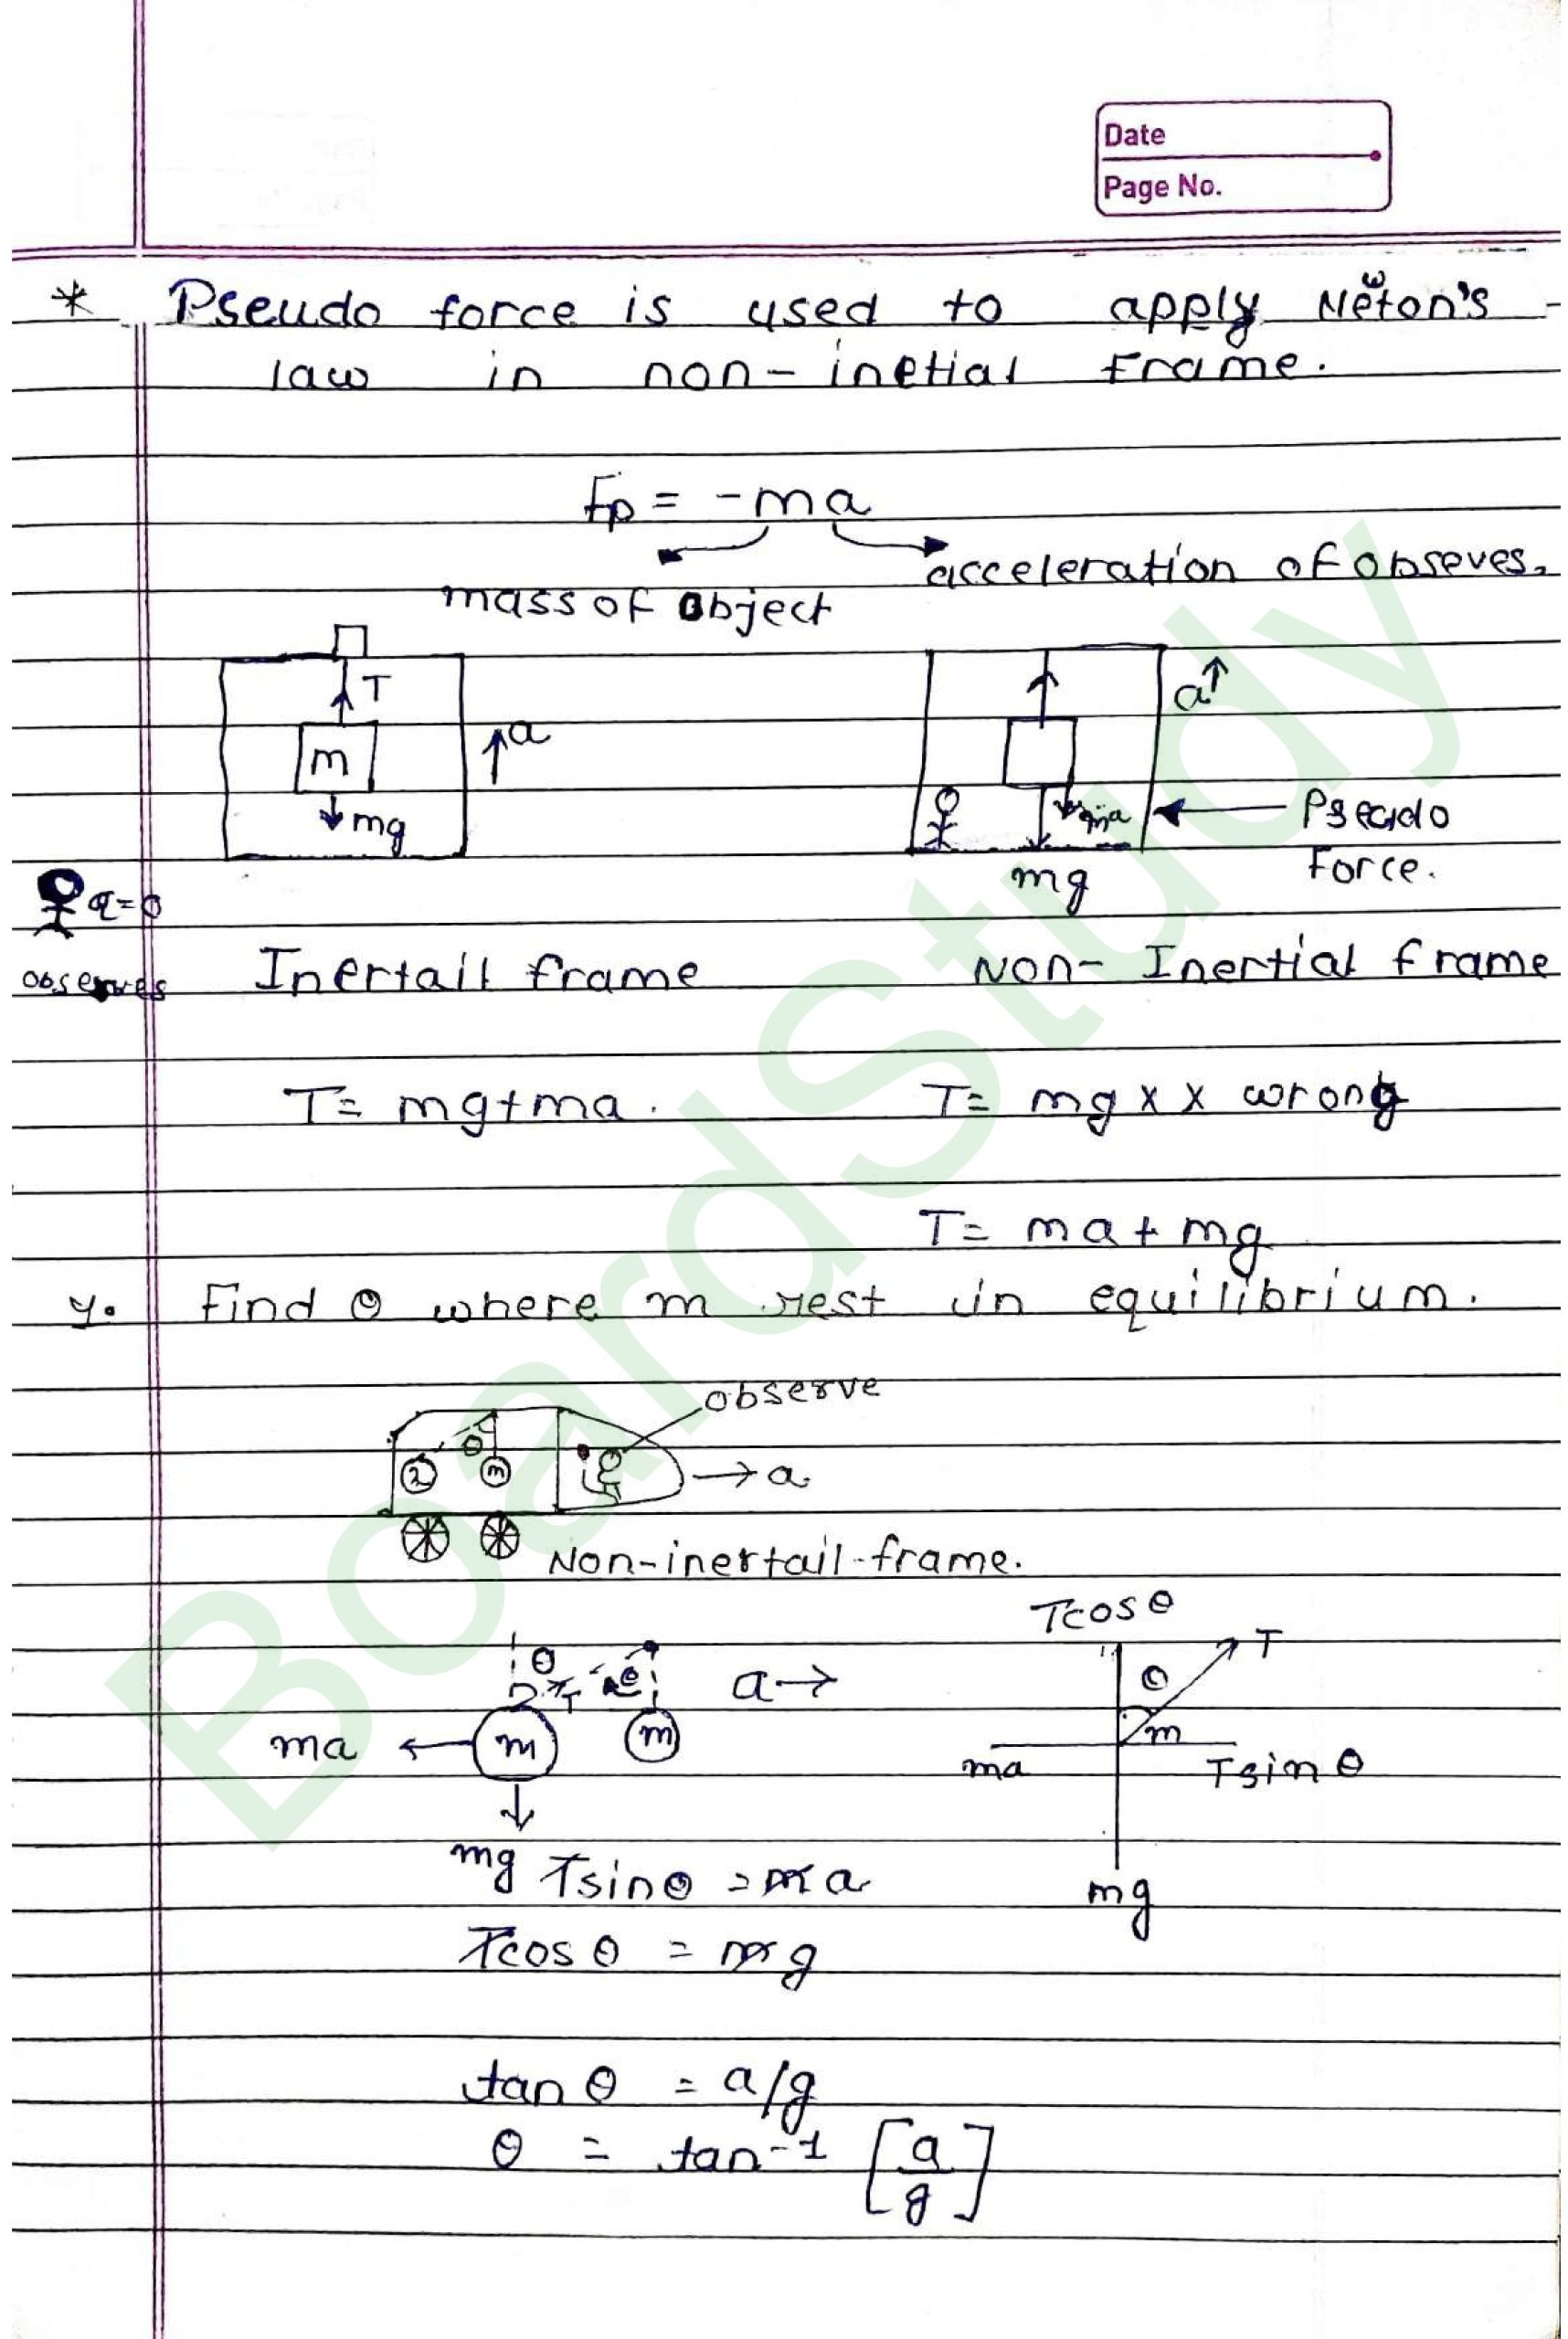 Date
Page No.
* Pseudo force is used to apply Newton's
law in non-inetial Frame.
Fp = -ma
acceleration of obseves.
mass of object
T
a
m
mg
a
ma
Pseudo
Force.
mg
a=0
observes
Inertail frame
Non-Inertial frame
T= mg+ma.
T= mg x x wrong
T= ma+mg
Find θ where m rest in equilibrium.
observe
θ
2
m
a
Non-inertail-frame.
Tcosθ
θ
T
θ
a
T
θ
ma
m
m
m
ma
Tsinθ
mg
Tsinθ = ma
mg
Tcosθ = mg
tanθ = a/g
θ = tan-1 [a/g]
BoardStudy